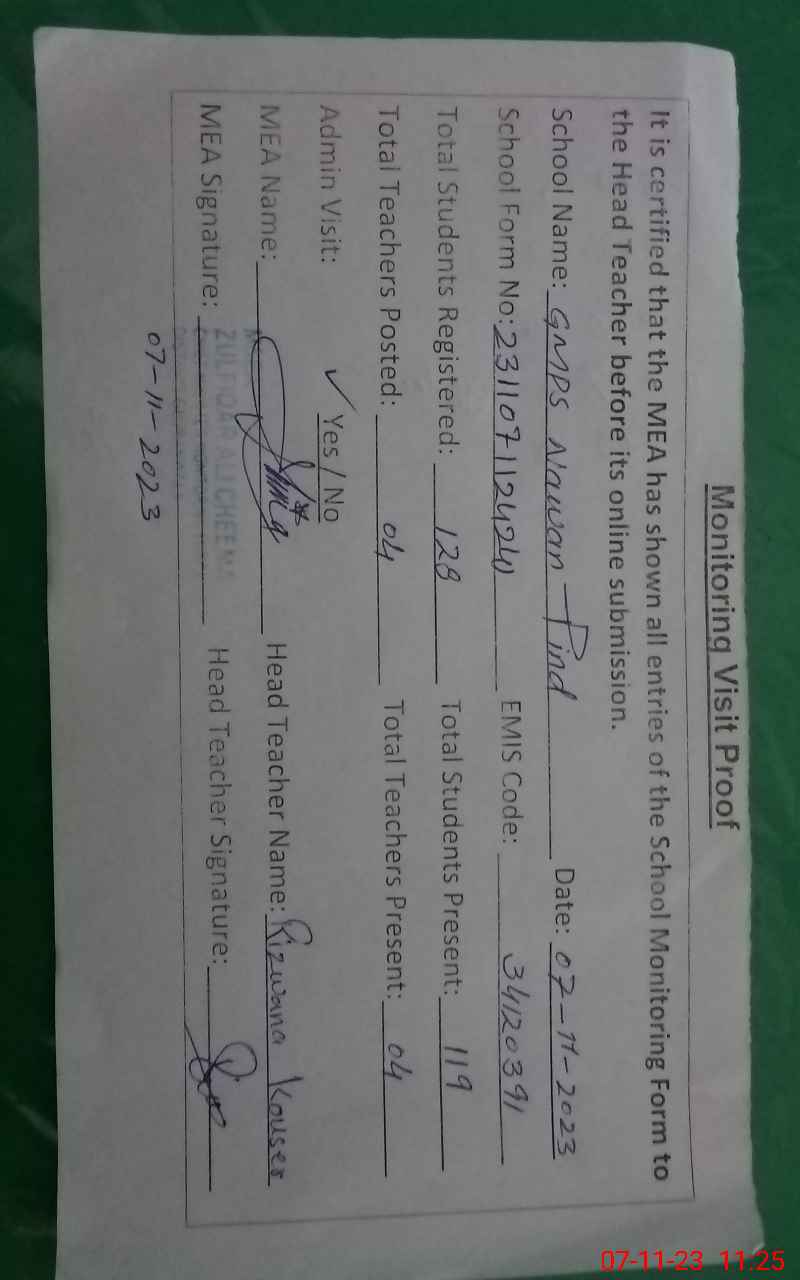 Monitoring Visit Proof
It is certified that the MEA has shown all entries of the School Monitoring Form to
the Head Teacher before its online submission.
School Name: GMPS Nawan Pind Date: 07-11-2023
School Form No: 231107112424 EMIS Code: 34120391
Total Students Registered: 128 Total Students Present: 119
Total Teachers Posted: 04 Total Teachers Present: 04
Admin Visit: ✓ Yes / No
MEA Name: Head Teacher Name: Rizwana Kouser
ZULFIQAR ALI CHEEMA
MEA Signature: Head Teacher Signature:
07-11-2023
07-11-23 11:25